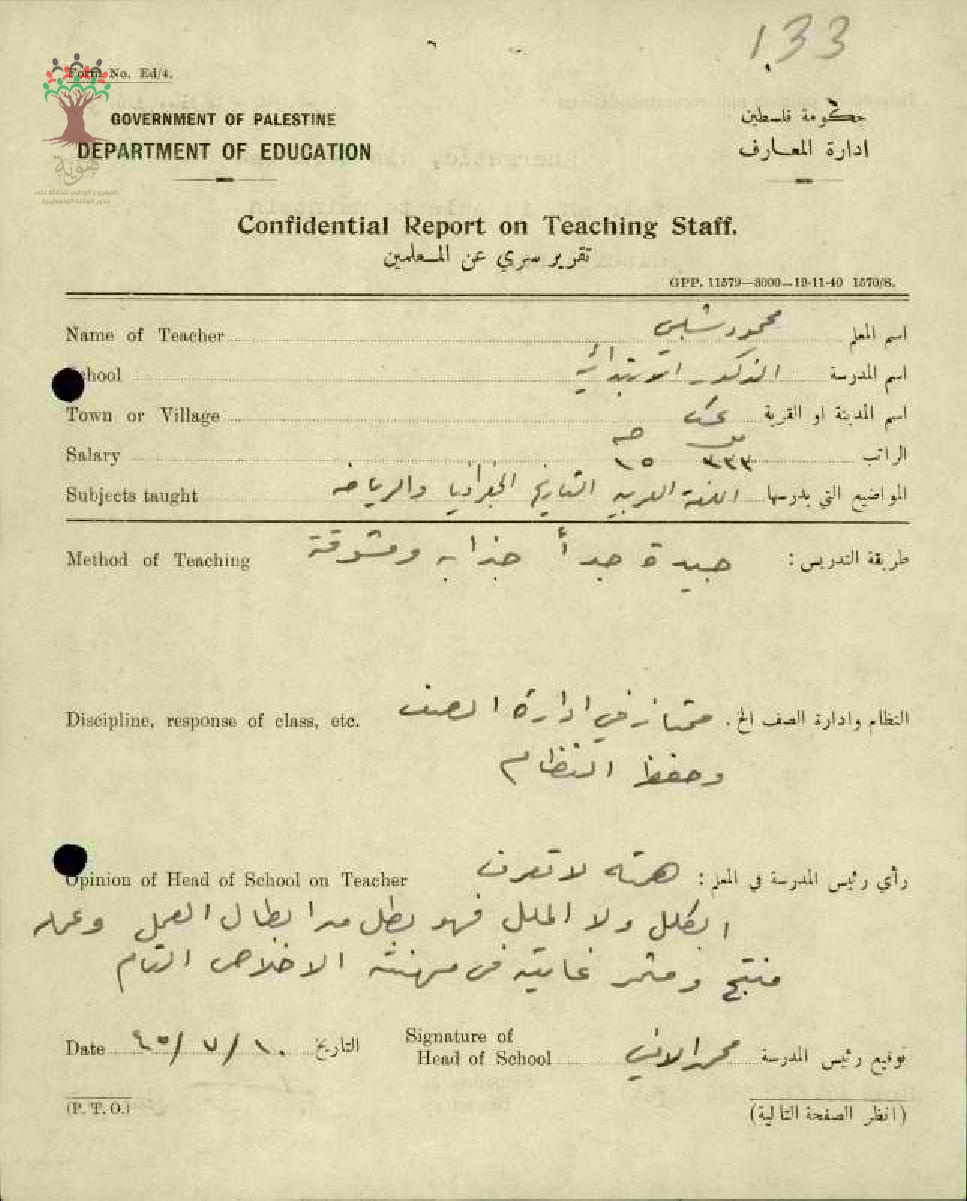 133
Form No. Ed/4.
هوية
المشروع الوطني للحفاظ على
جذور العائلة الفلسطينية
GOVERNMENT OF PALESTINE
حكومة فلسطين
DEPARTMENT OF EDUCATION
ادارة المعارف
Confidential Report on Teaching Staff.
تقرير سري عن المعلمين
GPP. 11579—3000—19-11-40 1570/S.
Name of Teacher محمود شلبي اسم المعلم
School الذكور الابتدائية اسم المدرسة
Town or Village عكا اسم المدينة او القرية
Salary ٣٣٣ ١٥ الراتب
Subjects taught اللغة العربيه التاريخ الجغرافيا والرياضه المواضيع التي يدرسها
Method of Teaching جيدة جداً جذابه ومشوقة طريقة التدريس :
Discipline, response of class, etc. ممتاز في ادارة الصف النظام وادارة الصف الخ .
وحفظ النظام
Opinion of Head of School on Teacher همته لا تعرف رأي رئيس المدرسة في المعلم :
الكلل ولا الملل فهو بطل من ابطال العمل وعمله
منتج ومثمر غايته في مهنته الاخلاص التام
Date ١٠/٧/٤٥ التاريخ Signature of
Head of School توقيع رئيس المدرسة
(P. T. O.) (انظر الصفحة التالية)